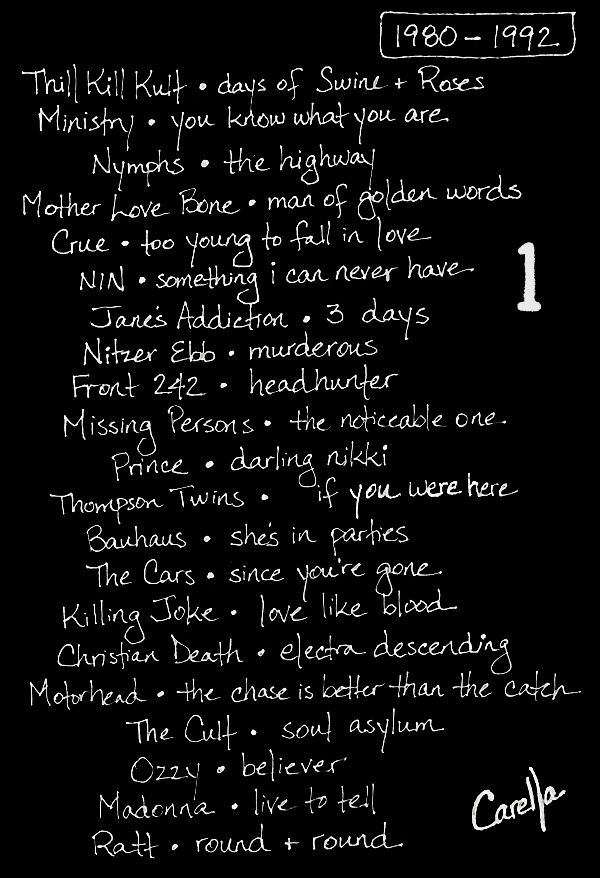 1980 - 1992
Thill Kill Kult • days of Swine + Roses
Ministry • you know what you are
Nymphs • the highway
Mother Love Bone • man of golden words
Crue • too young to fall in love
NIN • something i can never have
1
Jane's Addiction • 3 days
Nitzer Ebb • murderous
Front 242 • headhunter
Missing Persons • the noticeable one
Prince • darling nikki
Thompson Twins • if you were here
Bauhaus • she's in parties
The Cars • since you're gone
Killing Joke • love like blood
Christian Death • electra descending
Motorhead • the chase is better than the catch
The Cult • soul asylum
Ozzy • believer
Madonna • live to tell
Carella
Ratt • round + round